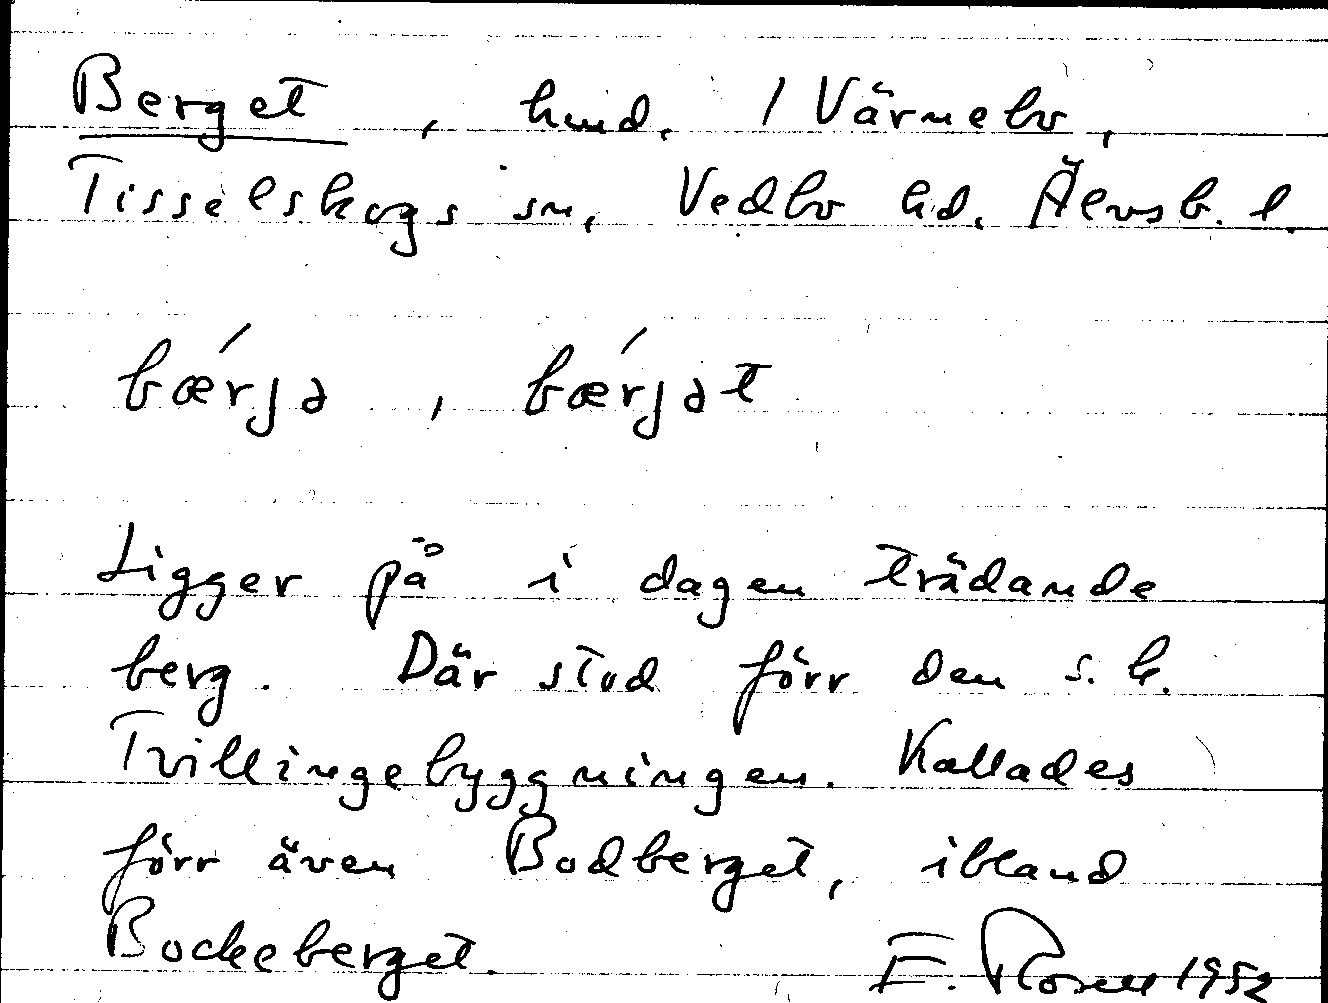 Berget, hmd. / Värmebo,
Tisselskogs sn, Vedbo hd. Älvsb. l.
bǽrjə, bǽrjət
Ligger på i dagen trädande
berg. Där stod förr den s. k.
Tvillingebyggningen. Kallades
förr även Bodberget, ibland
Bockeberget. E. Rosell 1952